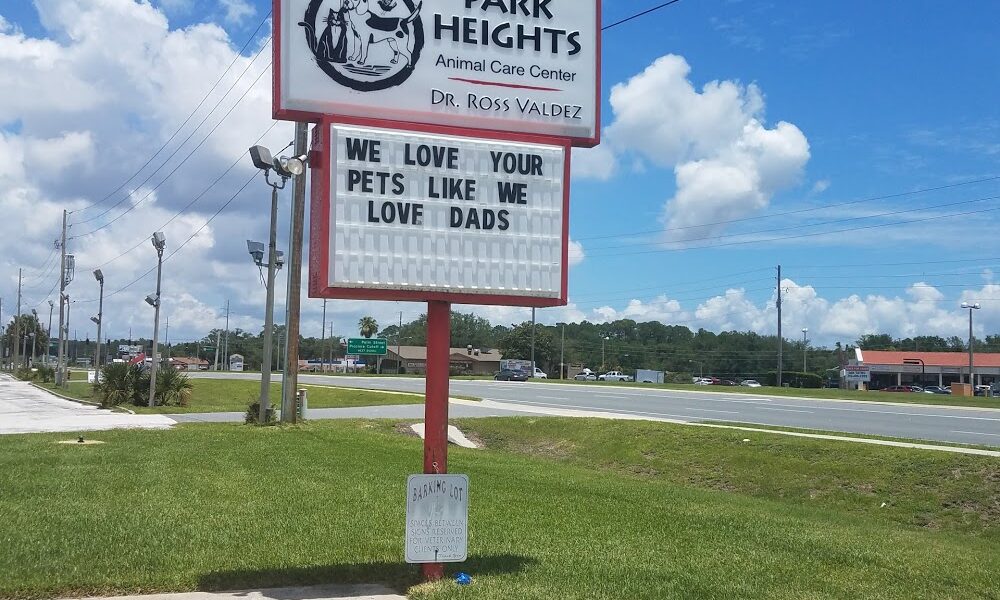 PARK
HEIGHTS
Animal Care Center
DR. ROSS VALDEZ
WE LOVE YOUR
PETS LIKE WE
LOVE DADS
BARKING LOT
SPACES BETWEEN
SIGNS RESERVED
FOR VETERINARY
CLIENTS ONLY